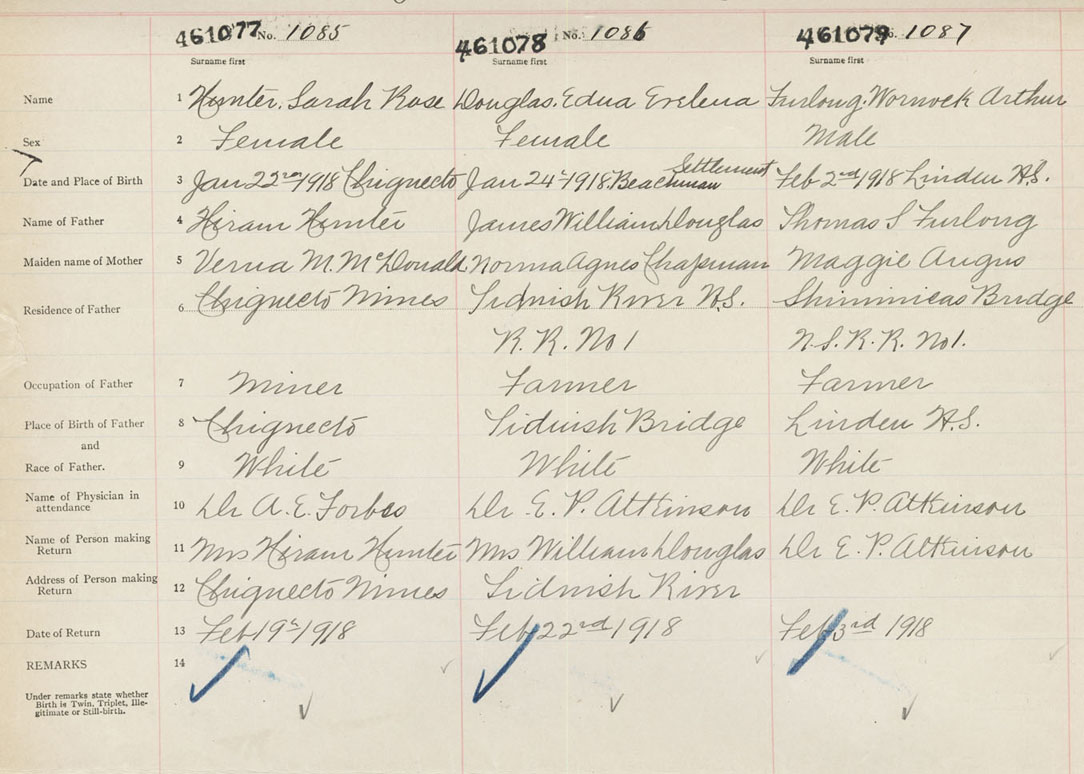 461077 No. 1085 461078 No. 1086 461079 No. 1087
Surname first Surname first Surname first
Name 1 Hunter, Sarah Rose Douglas, Edna Evelena Furlong, Arthur
Sex 2 Female Female Male
Settlement
Date and Place of Birth 3 Jan 22nd 1918 Chignecto Jan 24th 1918. Beachman Feb 2nd 1918 Linden N.S.
Name of Father 4 Hiram Hunter James William Douglas Thomas S Furlong
Maiden name of Mother 5 Verna M. McDonald Norma Agnes Chapman Maggie Angus
Residence of Father 6 Chignecto Mines Tidnish River N.S. Shinimicas Bridge
R. R. No 1 N.S. R. R. No 1.
Occupation of Father 7 Miner Farmer Farmer
Place of Birth of Father 8 Chignecto Tidnish Bridge Linden N.S.
and
Race of Father. 9 White White White
Name of Physician in attendance 10 Dr A. E. Forbes Dr E. P. Atkinson Dr E. P. Atkinson
Name of Person making Return 11 Mrs Hiram Hunter Mrs William Douglas Dr E. P. Atkinson
Address of Person making Return 12 Chignecto Mines Tidnish River
Date of Return 13 Feb 19th 1918 Feb 22nd 1918 Feb 3rd 1918
REMARKS 14
Under remarks state whether
Birth is Twin, Triplet, Ille-
gitimate or Still-birth.